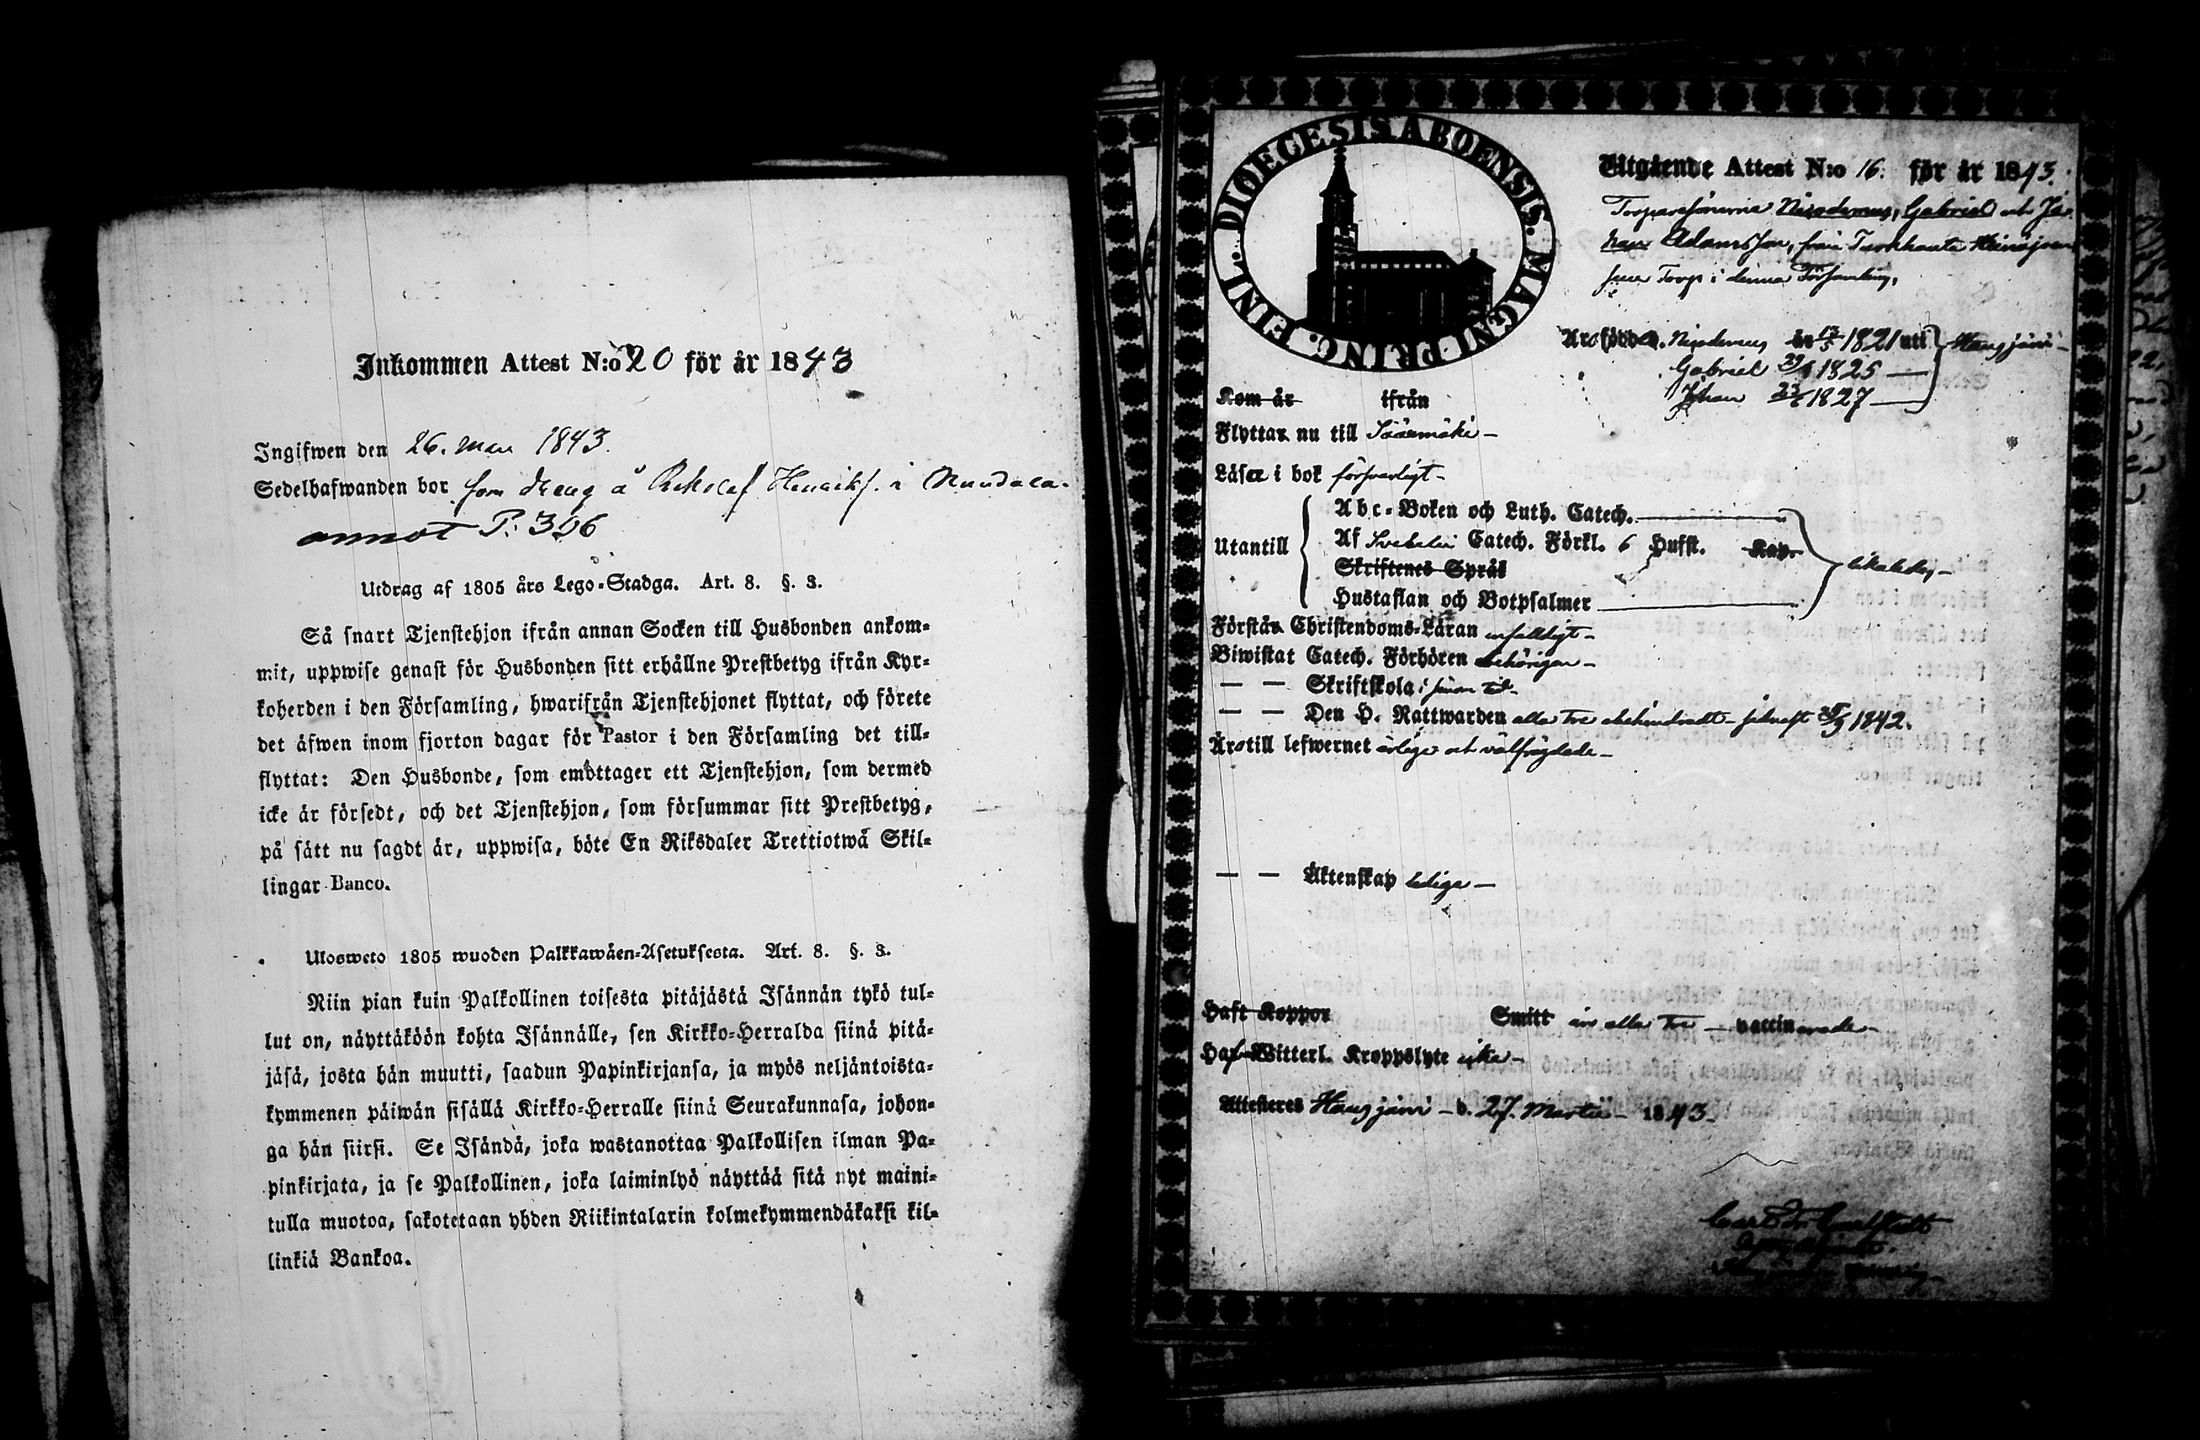 Inkommen Attest N:o 20 för år 1843
Ingifwen den 26. 1843.
Sedelhafwanden bor som dreng å Henriks. i
annot P: 306
Utdrag af 1805 års Lego-Stadga. Art. 8. §. 3.
Så snart Tjenstehjon ifrån annan Socken till Husbonden ankom-
mit, uppwise genast för Husbonden sitt erhållne Prestbetyg ifrån Kyr-
koherden i den Församling, hwarifrån Tjenstehjonet flyttat, och förete
det äfwen inom fjorton dagar för Pastor i den Församling det till-
flyttat: Den Husbonde, som emottager ett Tjenstehjon, som dermed
icke är försedt, och det Tjenstehjon, som försummar sitt Prestbetyg,
på sätt nu sagdt är, uppwisa, böte En Riksdaler Trettiotwå Skil-
lingar Banco.
Ulosweto 1805 wuoden Palkkawäen-Asetuksesta. Art. 8. §. 3.
Niin pian kuin Palkollinen toisesta pitäjästä Isännän tykö tul-
lut on, näyttäköön kohta Isännälle, sen Kirkko-Herralda siinä pitä-
jäsä, josta hän muutti, saadun Papinkirjansa, ja myös neljäntoista-
kymmenen päiwän sisällä Kirkko-Herralle siinä Seurakunnasa, johon-
ga hän siirsi. Se Isändä, joka wastanottaa Palkollisen ilman Pa-
pinkirjata, ja se Palkollinen, joka laiminlyö näyttää sitä nyt maini-
tulla muotoa, sakotetaan yhden Riikintalarin kolmekymmendäkaksi kil-
linkiä Bankoa.
DIOECESIS ABOENSIS. MAGNI PRINC. FINL.
Utgående Attest N:o 16. för år 1843.
Torparesönerne Nicodemus, Gabriel och Jo-
han Adamsson, från Turkhauta
Torp i denna Församling,
Äro födde, Nicodemus år 1821 uti Hausjärvi-
Gabriel 1825 —
Johan 1827 —
Kom år ifrån
Flyttar nu till Sääxmäki -
Läser i bok försvarligt -
Utantill
Abc-Boken och Luth. Catech.
Af Svebelii Catech. Förkl. 6 Hufst. Kap.
Skriftenes Språk
Hustaflan och Botpsalmer
likaledes -
Förstår Christendoms-Läran enfaldigt -
Biwistat Catech. Förhören behörigen -
— — Skriftskola i sinom tid -
— — Den H. Nattwarden alla tre obehindradt - 1842.
Äro till lefwernet ärlige och välfrägdade -
— — Äktenskap ledige -
Haft Koppor Smitt äro alla tre - vaccinerade -
Haf Witterl. Kroppslyte icke -
Attesteras Hausjärvi - d. 27. Martii - 1843.